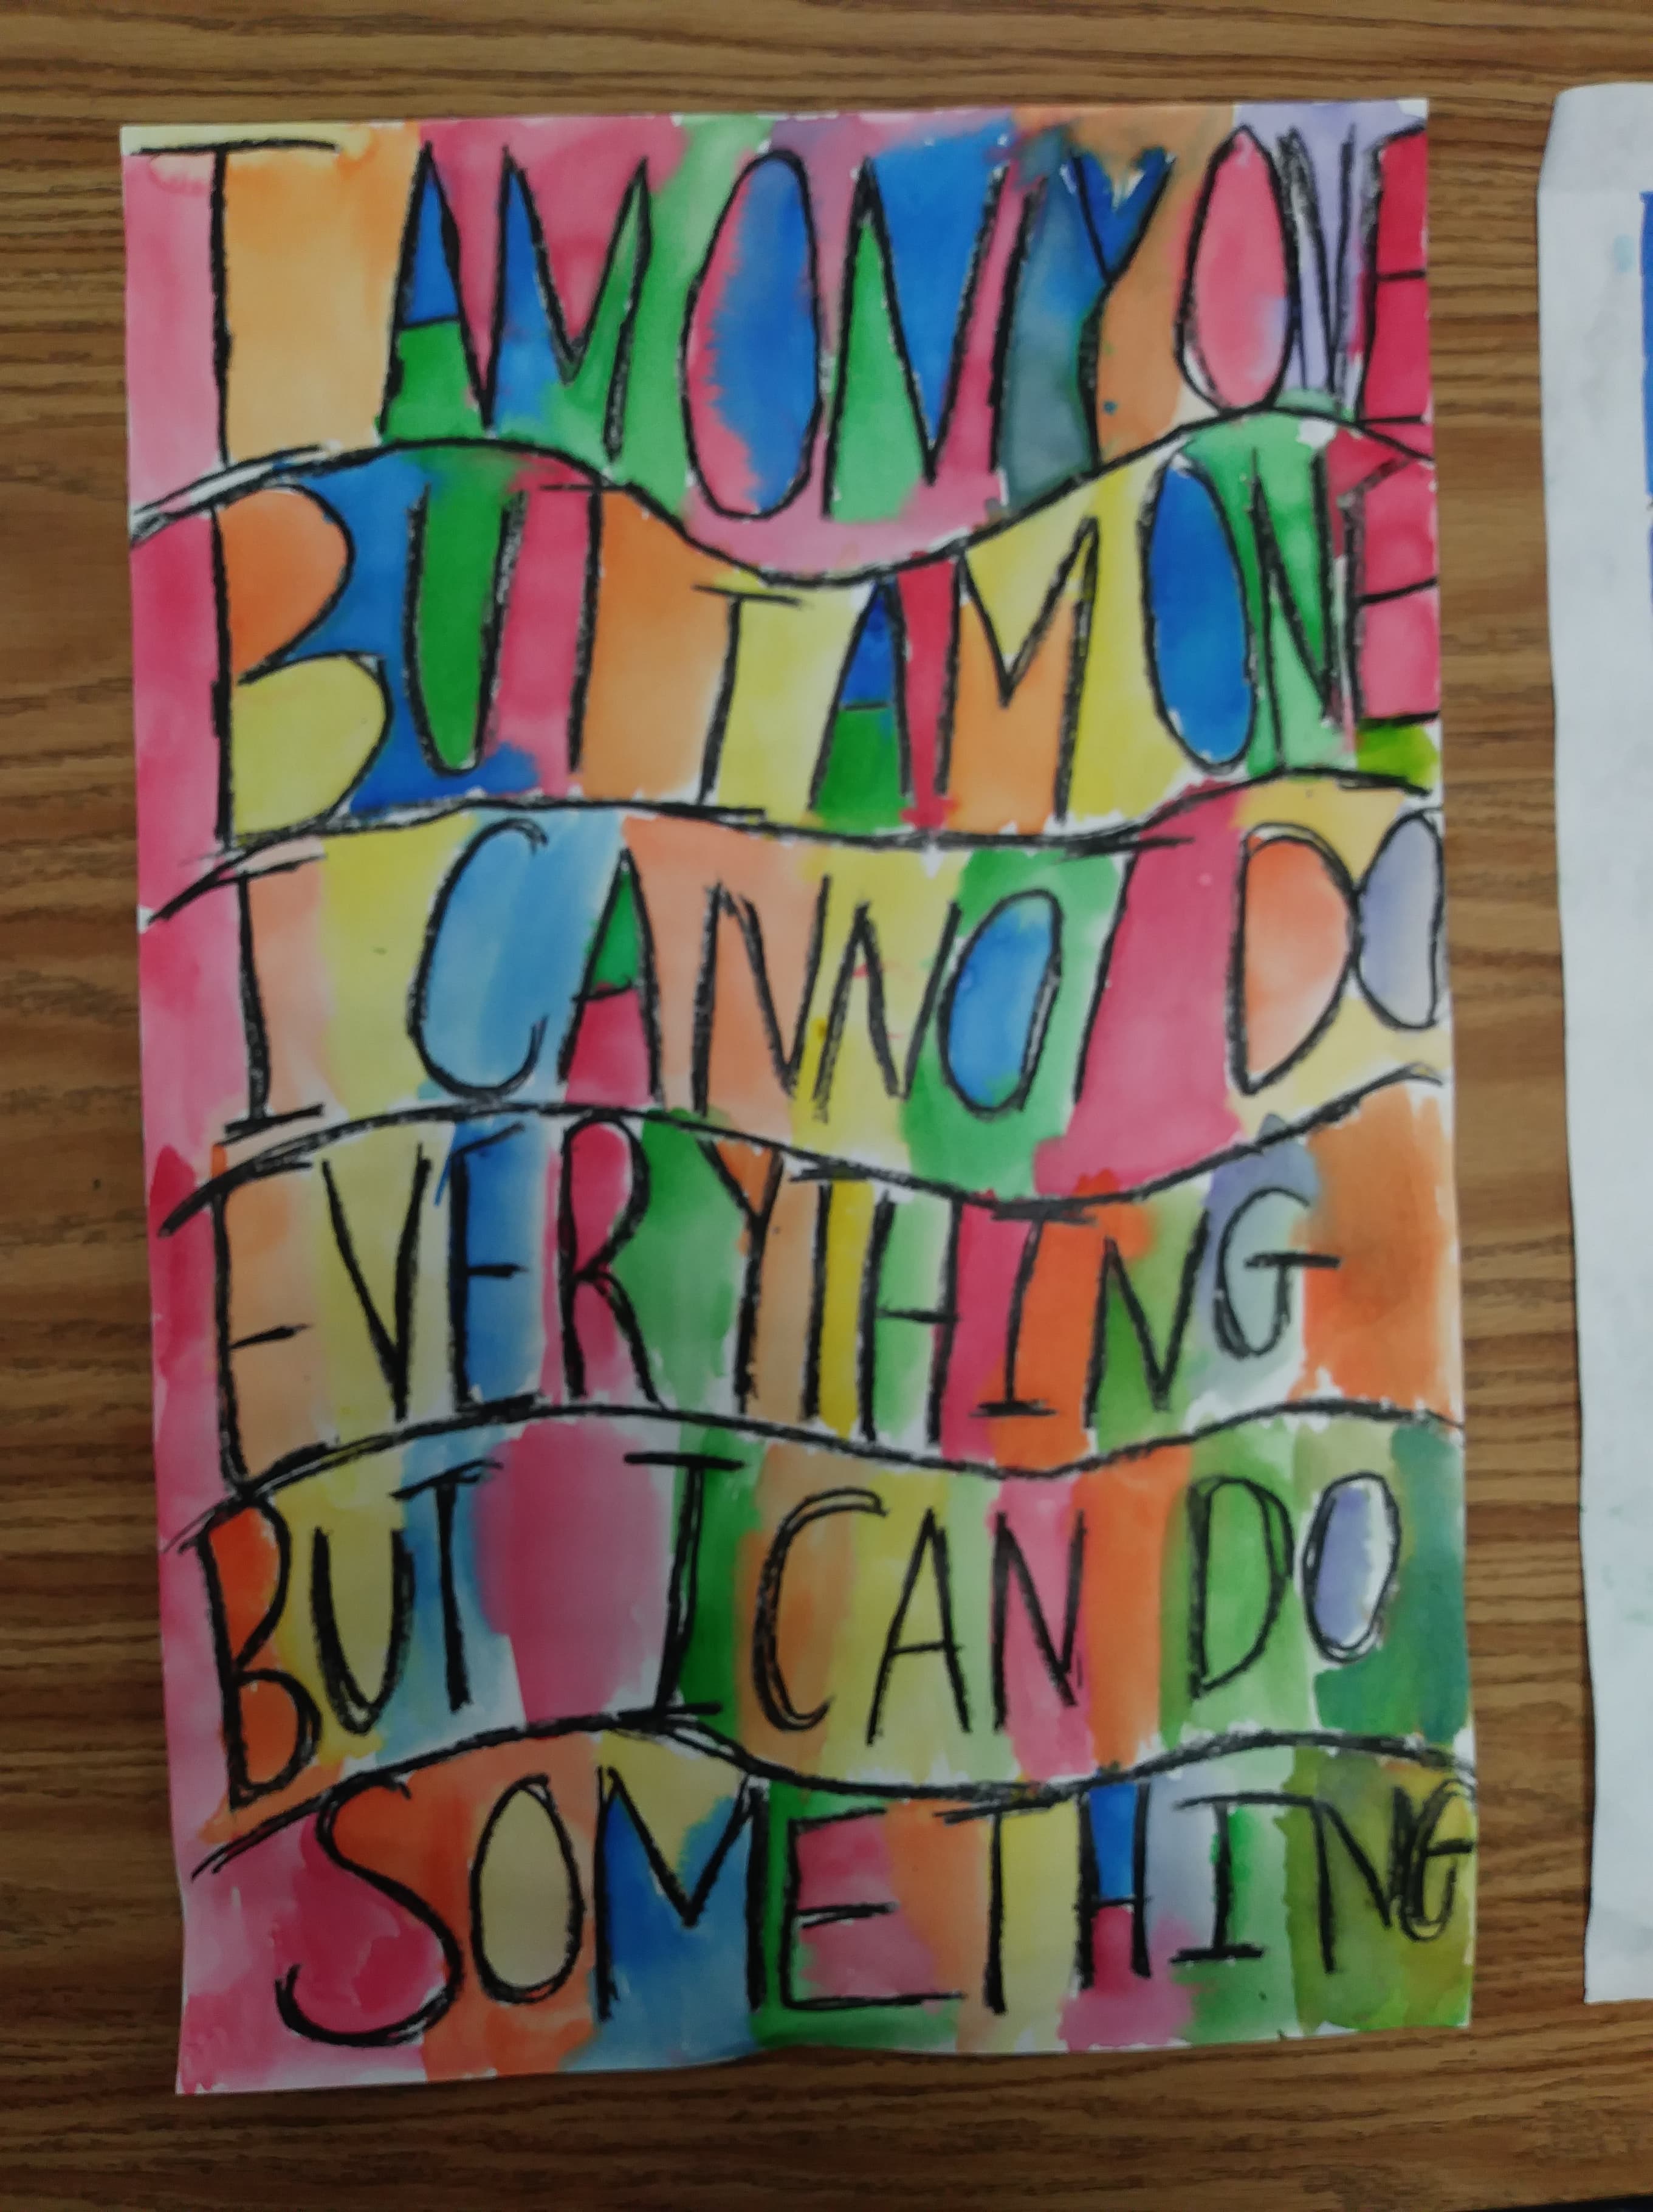 I AM ONLY ONE
BUT I AM ONE
I CANNOT DO
EVERYTHING
BUT I CAN DO
SOMETHING